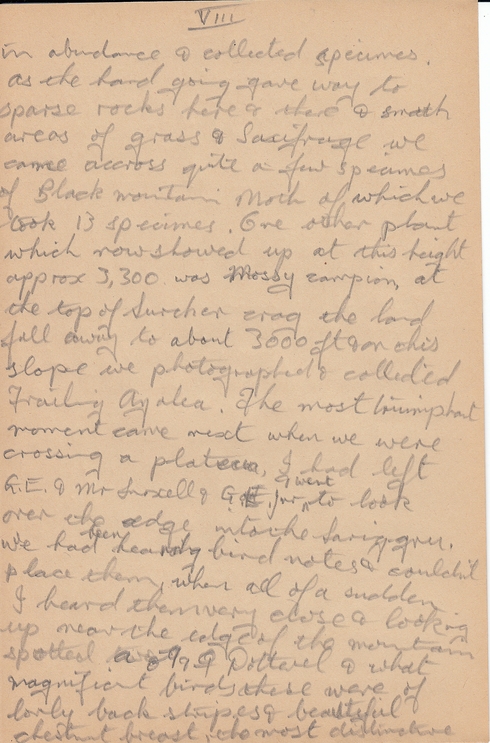 VIII
in abundance & collected specimes.
as the hard going gave way to
sparse rocks here & there & small
areas of grass & Saxifrage we
came accross quite a few specimes
of Black mountain Moth of which we
took 13 specimes. One other plant
which now showed up at this height
approx 3,300 was Mossy campion, at
the top of lurcher crag the land
fall away to about 3000 ft & on this
slope we photographed & collected
Trailing Azalea. The most triumphant
moment came next when we were
crossing a plateau, I had left
G.E. & Mr & G.E. Jnr & went to look
over the edge into the
we had been hearing bird notes & couldn't
place them, when all of a sudden
I heard them very close & looking
up near the edge of the mountain
spotted Dotterel & what
magnificent birds these were of
lovly back stripes & beautiful
chestnut breast, the most distinctive